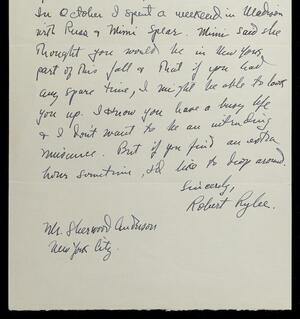 In October I spent a weekend in Madison
with Russ & Mimi Spear. Mimi said she
thought you would be in New York
part of this fall & that if you had
any spare time, I might be able to look
you up. I know you have a busy life
& I don't want to be an intruding
nuisance. But if you find an extra
hour sometime, I'd like to drop around.
Sincerely,
Robert Rylee.
Mr. Sherwood Anderson
New York City.